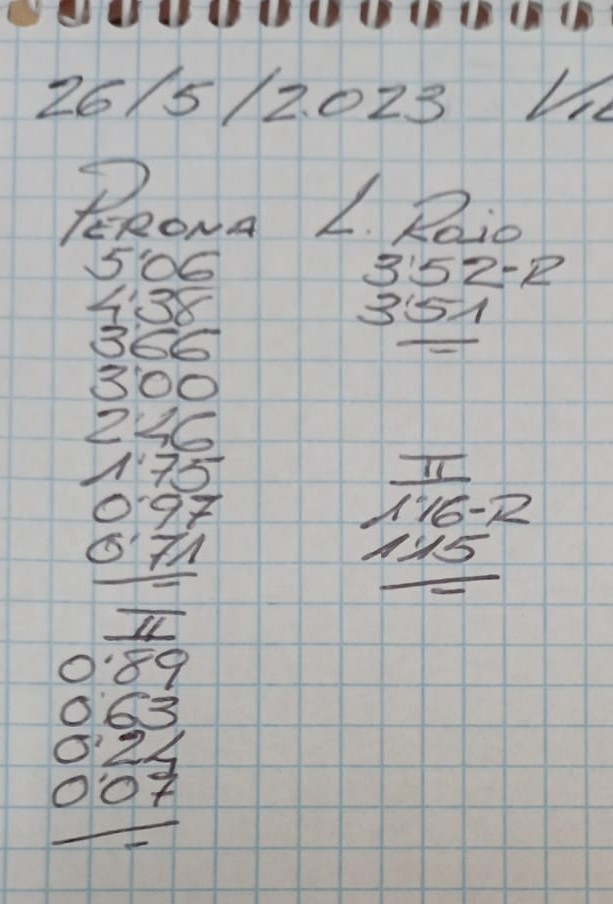 26/5/2.023
PERONA
5'06
4'38
3'66
3'00
2'46
1'75
0'97
0'71
II
0'89
0'63
0'24
0'07
L. Rojo
3'52-R
3'51
II
1'16-R
1'15